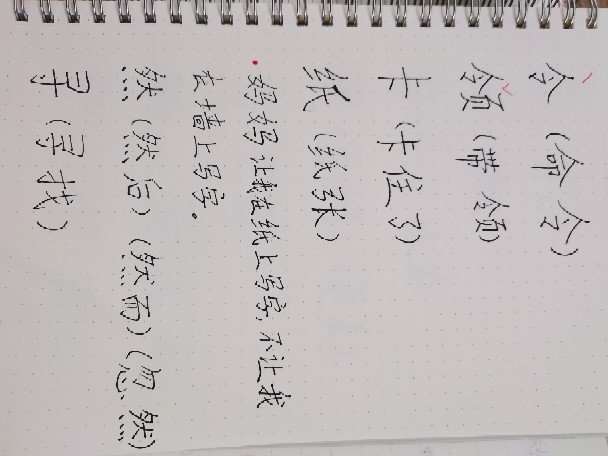 令（命令）
领（带领）
卡（卡住了）
纸（纸张）
妈妈让我在纸上写字，不让我
在墙上写字。
然（然后）（然而）（忽然）
寻（寻找）